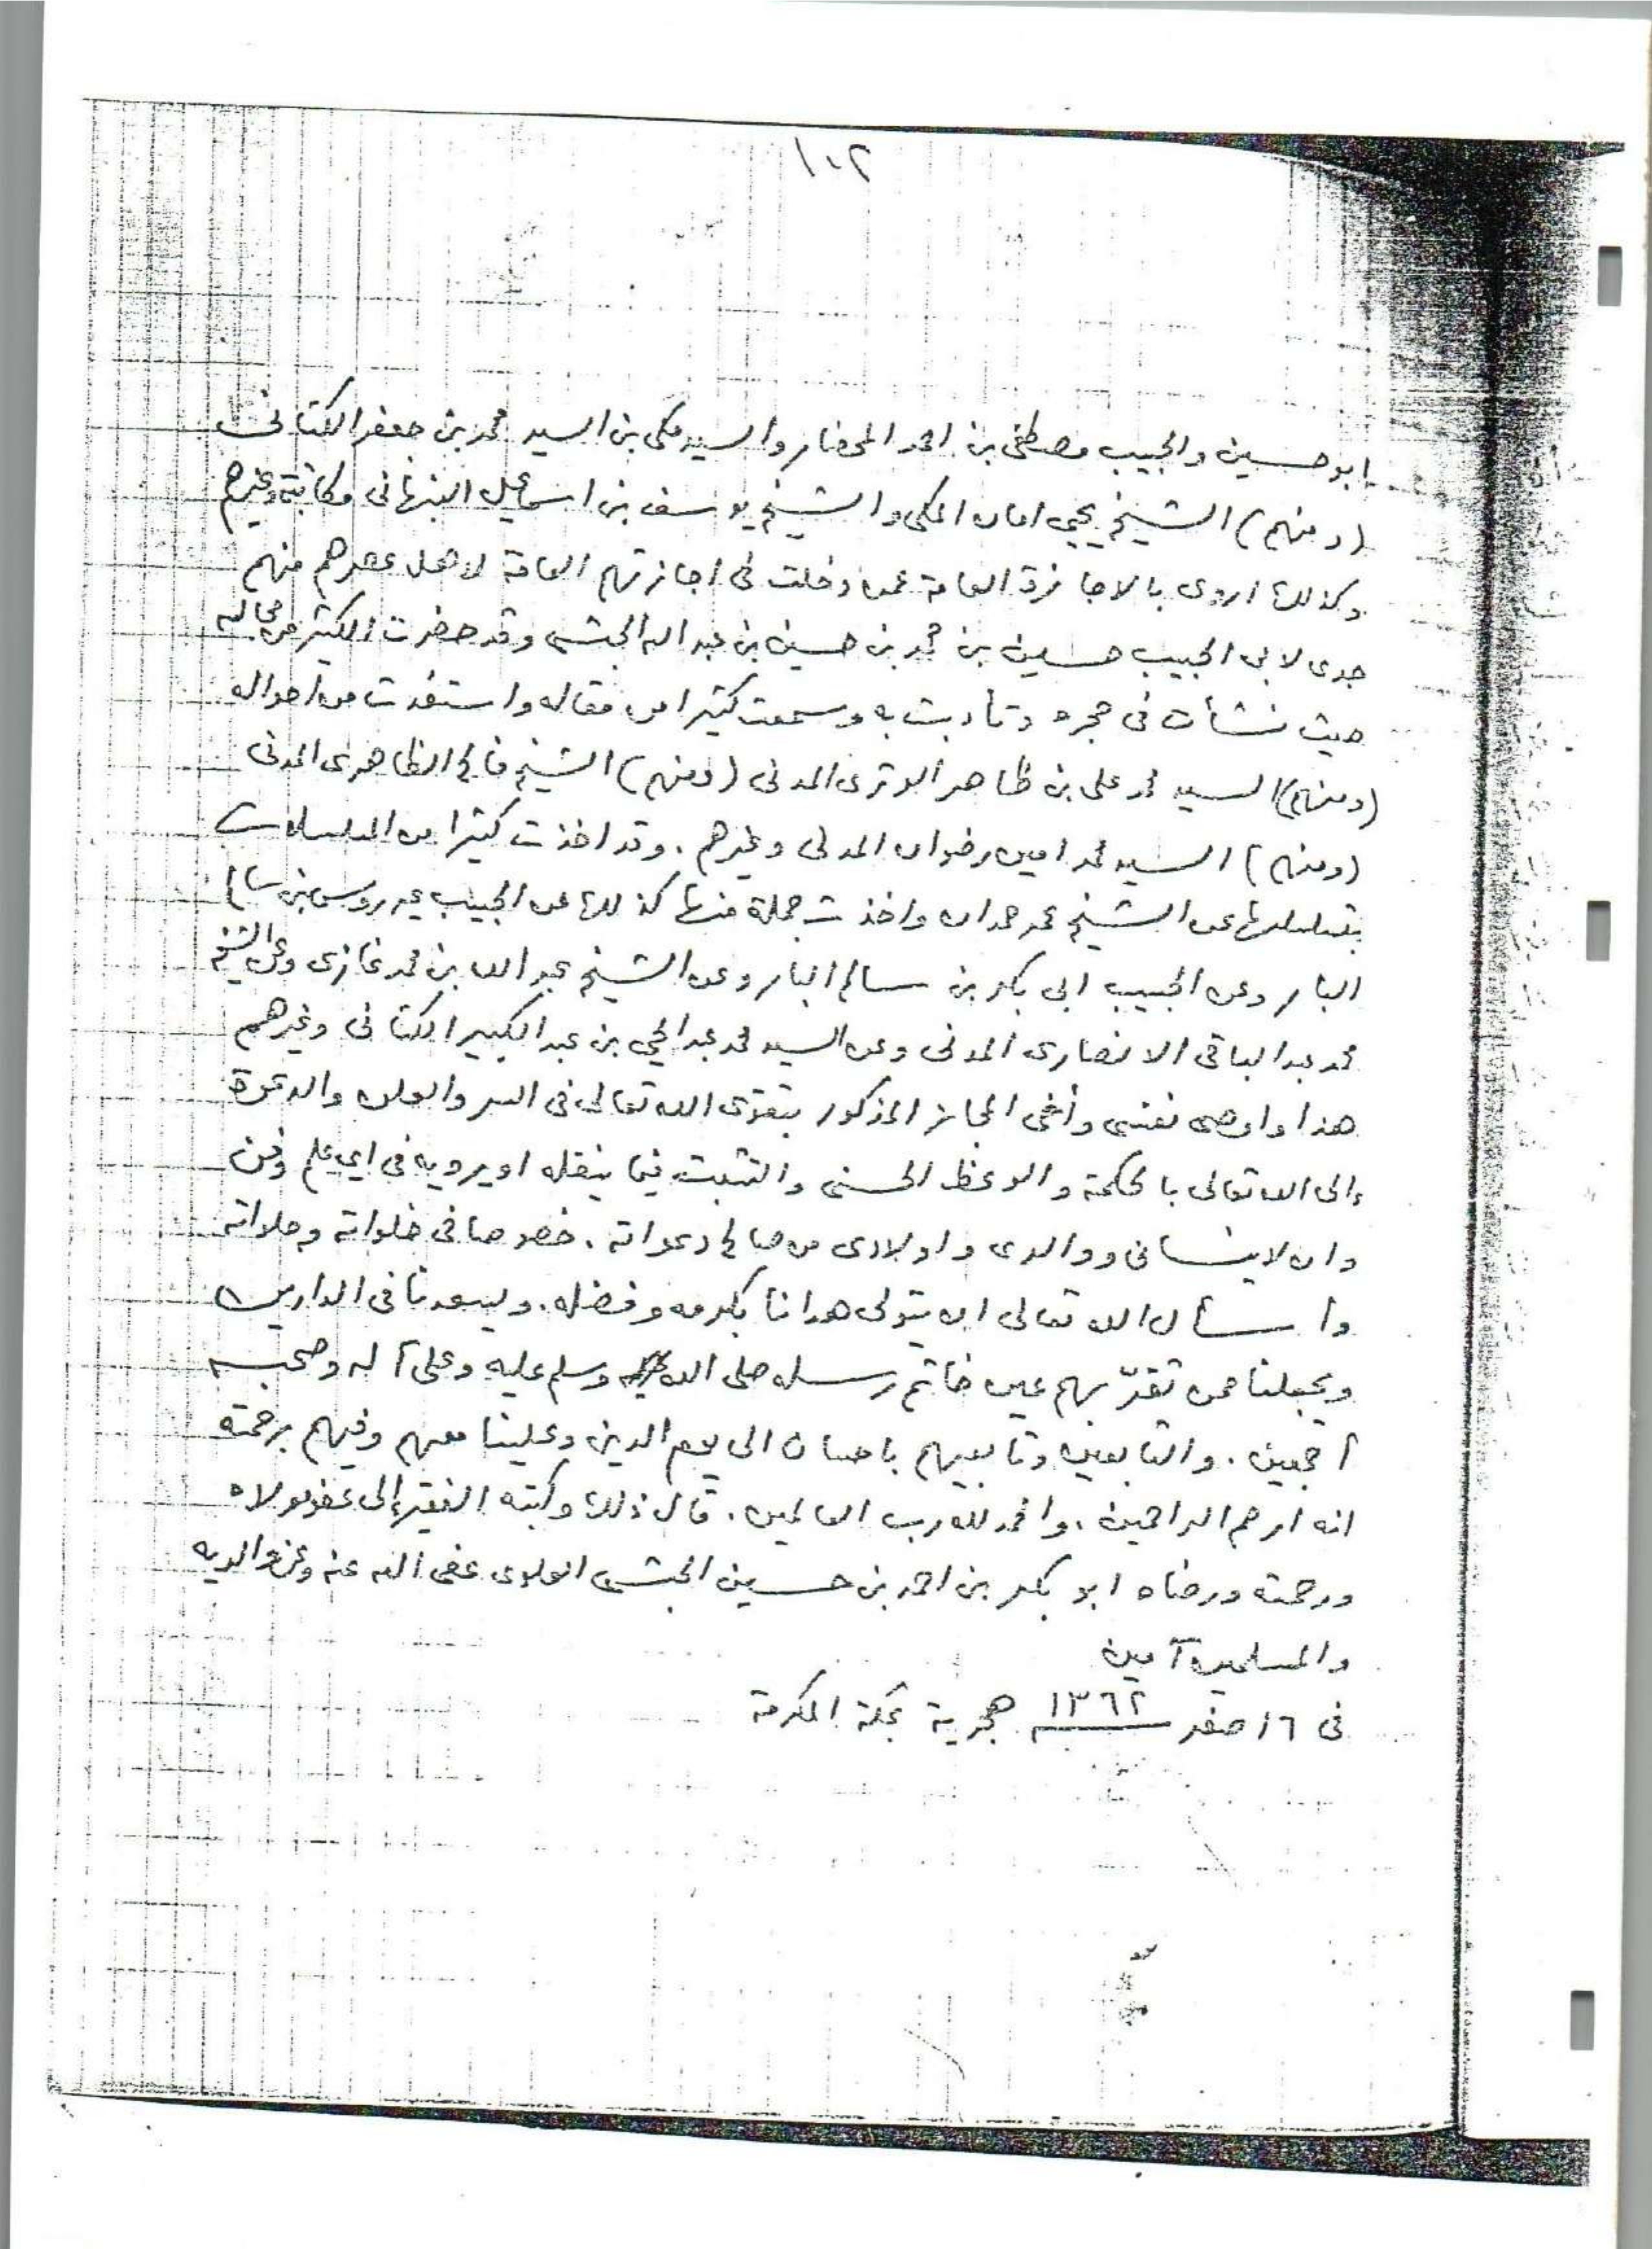 ١٠٢
ابو حسين والحبيب مصطفى بن احمد المحضار والسيد مكى بن السيد محمد بن جعفر الكتانى
(ومنهم) الشيخ يحيى امان المكى والشيخ يوسف بن اسماعيل النبهانى مكاتبة وغيرهم
وكذلك اروى بالاجازة العامة عمن دخلت فى اجازتهم العامة لاهل عصرهم منهم
جدى لابى الحبيب حسين بن محمد بن حسين بن عبد الله الحبشى وقد حضرت الكثير من مجالسه
حيث نشأت فى حجره وتأدبت به وسمعت كثيرا من مقاله واستفدت من احواله
(ومنهم) السيد محمد على بن ظاهر الوترى المدنى (ومنهم) الشيخ فالح الظاهرى المدنى
(ومنهم) السيد محمد امين رضوان المدنى وغيرهم . وقد اخذت كثيرا من المسلسلات
بتسلسلها عن الشيخ عمر حمدان واخذت جملة منها كذلك عن الحبيب عيدروس بن سالم
البار وعن الحبيب ابى بكر بن سالم البار وعن الشيخ عبد الله بن محمد غازى وعن الشيخ
محمد عبد الباقى الانصارى المدنى وعن السيد محمد عبد الحي بن عبد الكبير الكتانى وغيرهم
هذا واوصى نفسى وأخى المجاز المذكور بتقوى الله تعالى فى السر والعلن والدعوة
إلى الله تعالى بالحكمة والوعظ الحسنى والتثبت فيما ينقله او يرويه فى اي علم وفن
وان لا ينسانى ووالدى واولادى من صالح دعواته . خصوصا فى خلواته وجلواته
وأسأل الله تعالى ان يتولى هدانا بكرمه وفضله . ويسعدنا فى الدارين
ويجعلنا ممن تقرّ بهم عين خاتم رسله صلى الله وسلم عليه وعلى آله وصحبه
أجمعين . والتابعين وتابعيهم باحسان الى يوم الدين وعلينا معهم وفيهم برحمته
انه ارحم الراحمين . والحمد لله رب العالمين . قال ذلك وكتبه الفقير إلى عفو مولاه
ورحمته ورضاه ابو بكر بن احمد بن حسين الحبشى العلوى عفى الله عنه وعن والديه
والمسلمين آمين
فى ١٦ صفر سنة ١٣٦٢ هجرية بمكة المكرمة